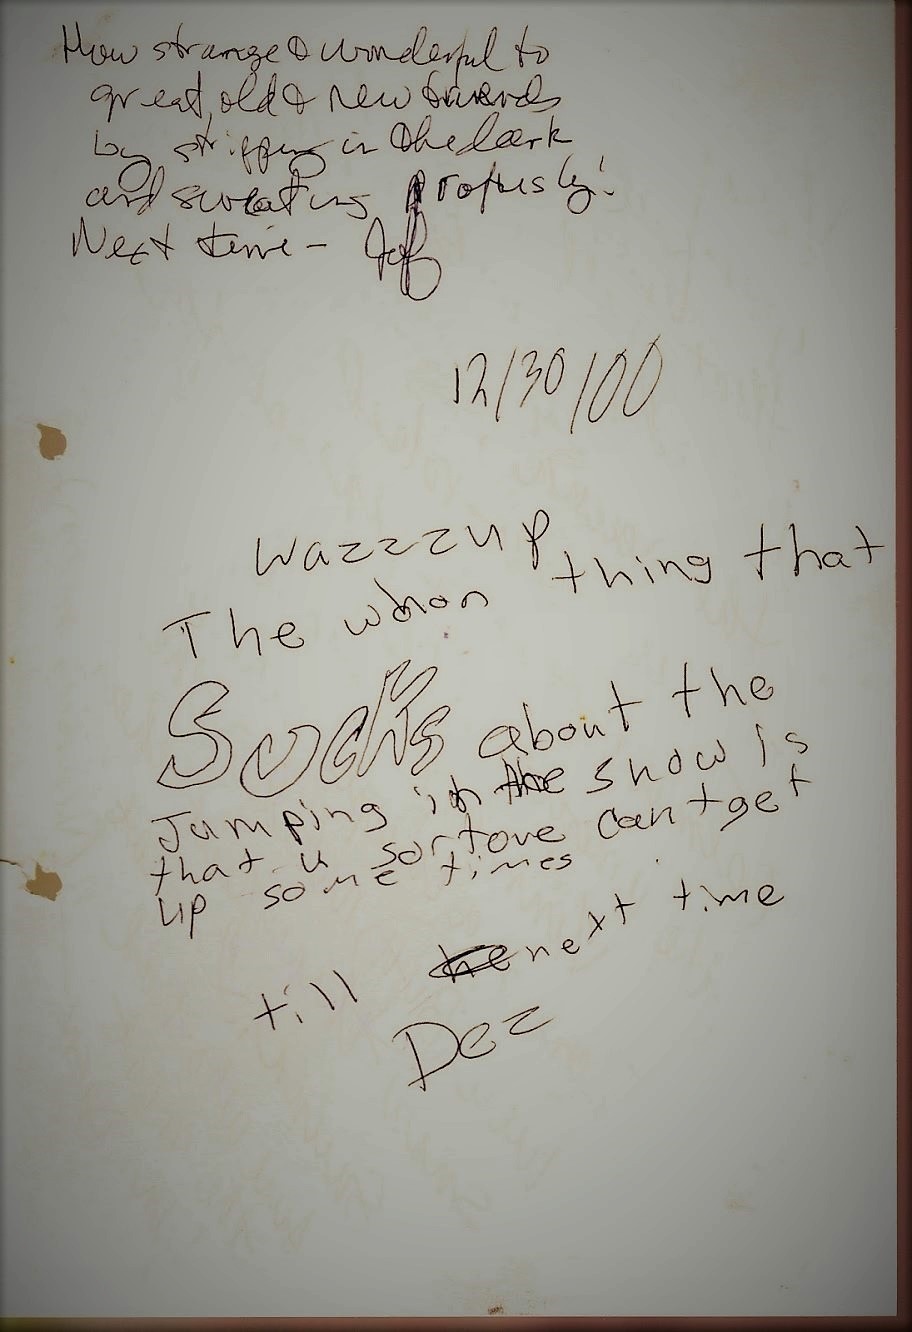 How strange & wonderful to
great old & new friends
by stripping in the dark
and sweating profusely!
Next time - Jeff
12/30/00
Wazzzup
The whon thing that
Sucks about the
Jumping in the snow is
that u sortove cantget
up some times
till next time
Dez